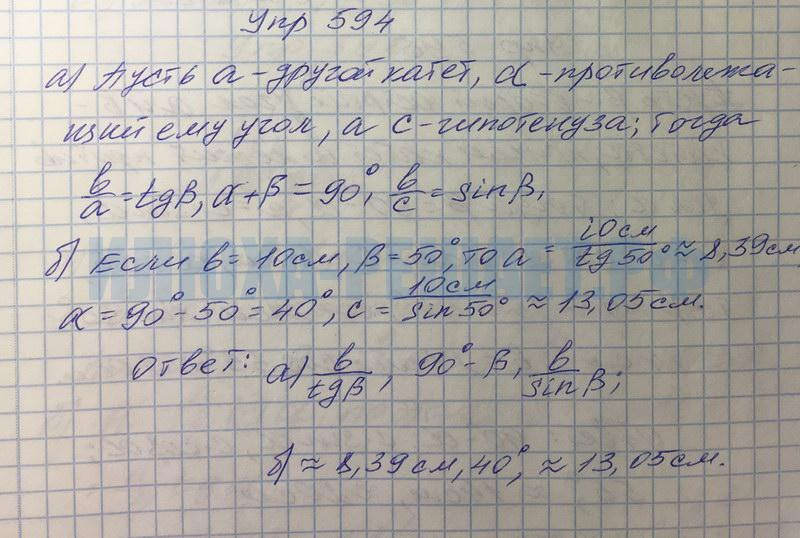 Упр 594
а) Пусть a - другой катет, α - противолежа-
щий ему угол, а c - гипотенуза; тогда
b/a = tgβ, α + β = 90°, b/c = sinβ,
б) Если b = 10см, β = 50°, то a = 10см/tg50° ≈ 8,39см
α = 90° - 50° = 40°, c = 10см/sin50° ≈ 13,05см.
Ответ: а) b/tgβ, 90° - β, b/sinβ;
б) ≈ 8,39см, 40°, ≈ 13,05см.